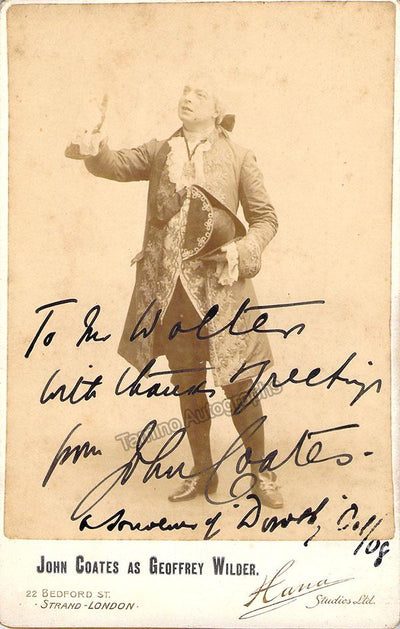 To Mr Wolters
with thanks & greetings
from John Coates -
a souvenir of "Dorothy"
Oct/08
Tamino Autographs
JOHN COATES AS GEOFFREY WILDER.
22 BEDFORD ST.
· STRAND·LONDON·
Hana
Studios Ltd.